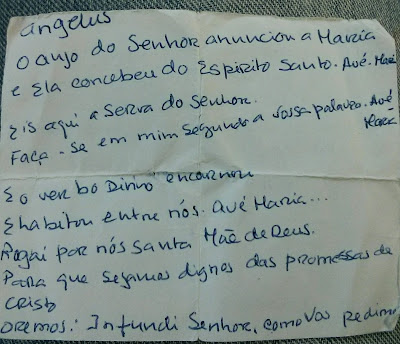 angelus
O anjo do Senhor anunciou a Maria
e Ela concebeu do Espirito Santo. Avé. Maria
Eis aqui a Serva do Senhor.
Faça-se em mim segundo a vossa palavra. Avé
Maria
E o verbo Divino encarnou
E habitou entre nós. Avé Maria...
Rogai por nós Santa Mãe de Deus.
Para que sejamos dignos das promessas de
Cristo
Oremos: Infundi Senhor, como Vos pedimo